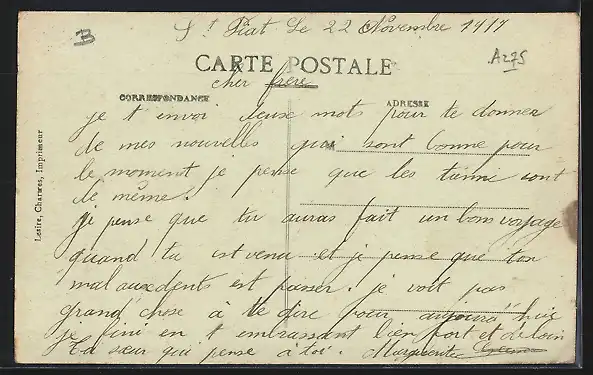 St Piat Le 22 Novembre 1917
B
A275
CARTE POSTALE
cher frère
CORRESPONDANCE
ADRESSE
je t envoi deuse mots pour te donner
de mes nouvelles qui sont bonne pour
le moment je pense que les tienne sont
de même.
je pense que tu auras fait un bon voyage
quand tu est venu et je pense que ton
mal auxdents est passer. je voit pas
grand chose à te dire pour aujourd'huis
je fini en t embrassant bien fort et de loin
Ta sœur qui pense à toi. Marguerite
Lesire, Charwes, Imprimeur